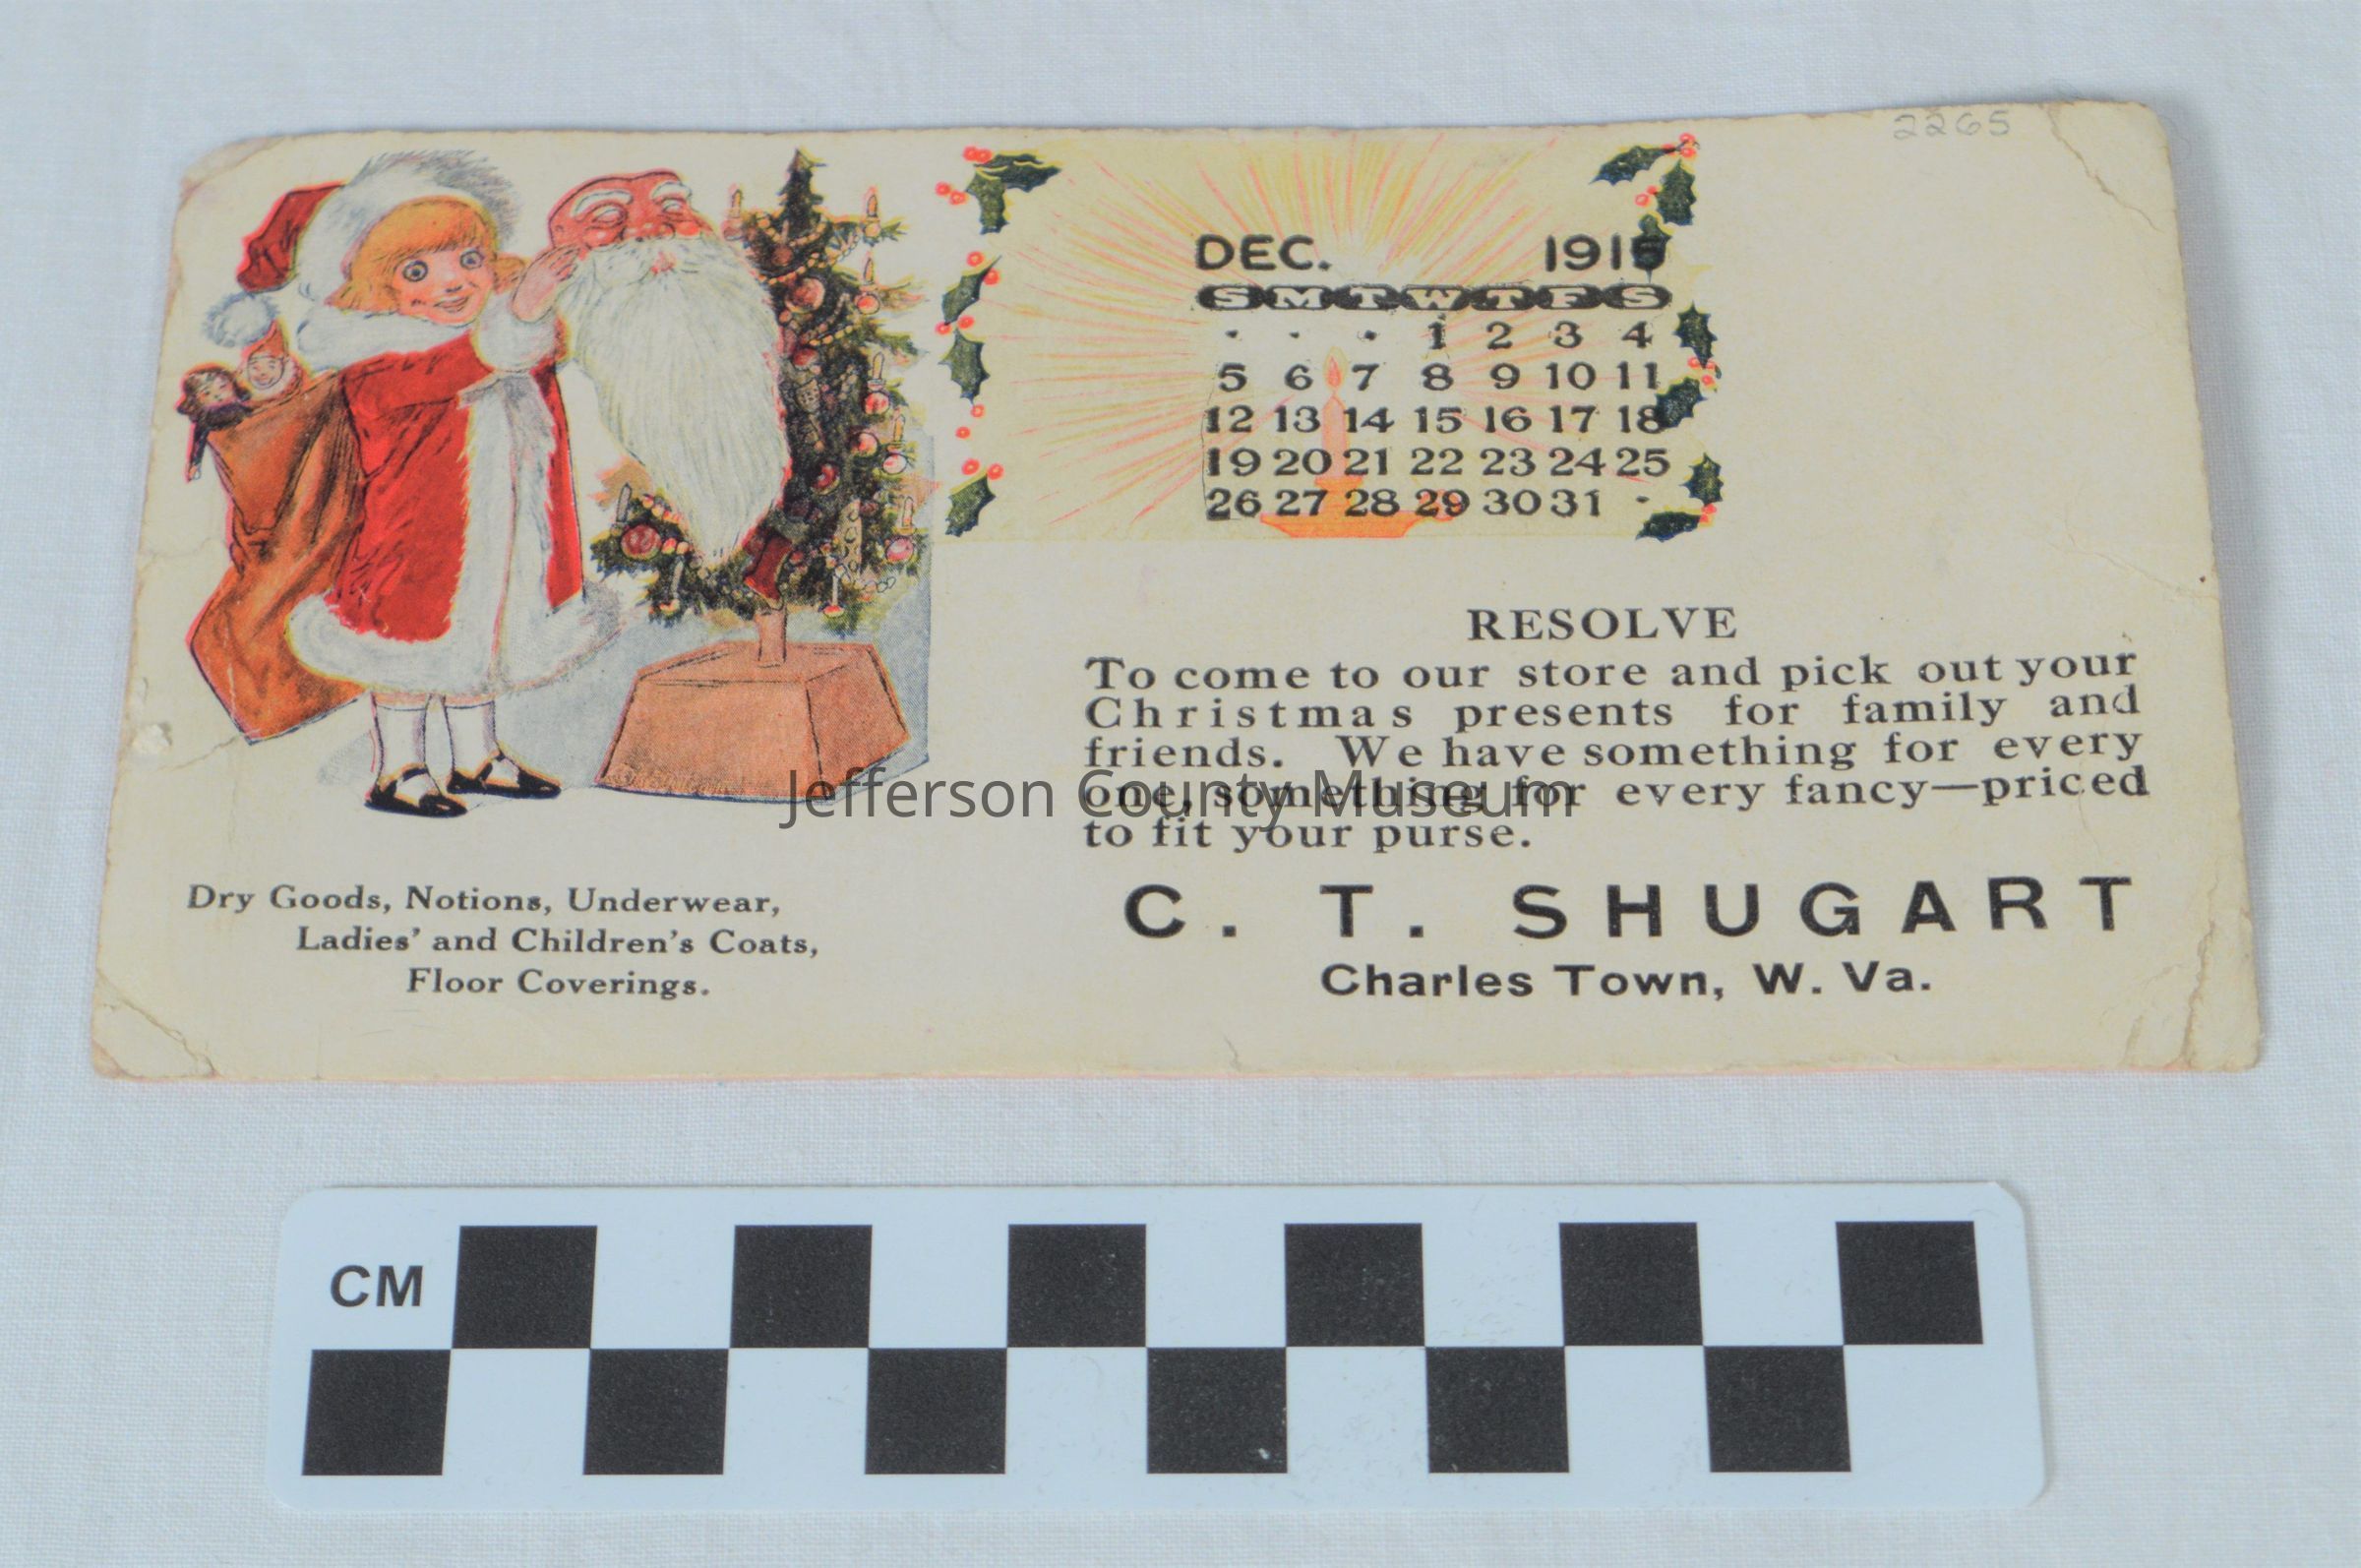 2265
DEC. 1915
S M T W T F S
1 2 3 4
5 6 7 8 9 10 11
12 13 14 15 16 17 18
19 20 21 22 23 24 25
26 27 28 29 30 31
RESOLVE
To come to our store and pick out your
Christmas presents for family and
friends. We have something for every
one, something for every fancy—priced
to fit your purse.
C. T. SHUGART
Charles Town, W. Va.
Dry Goods, Notions, Underwear,
Ladies' and Children's Coats,
Floor Coverings.
Jefferson County Museum
CM